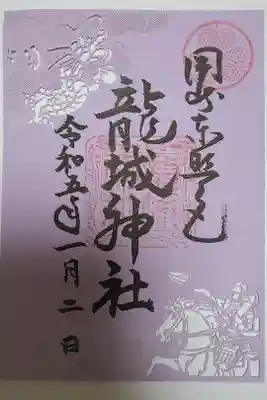 岡崎東照宮
龍城神社
令和五年一月二日